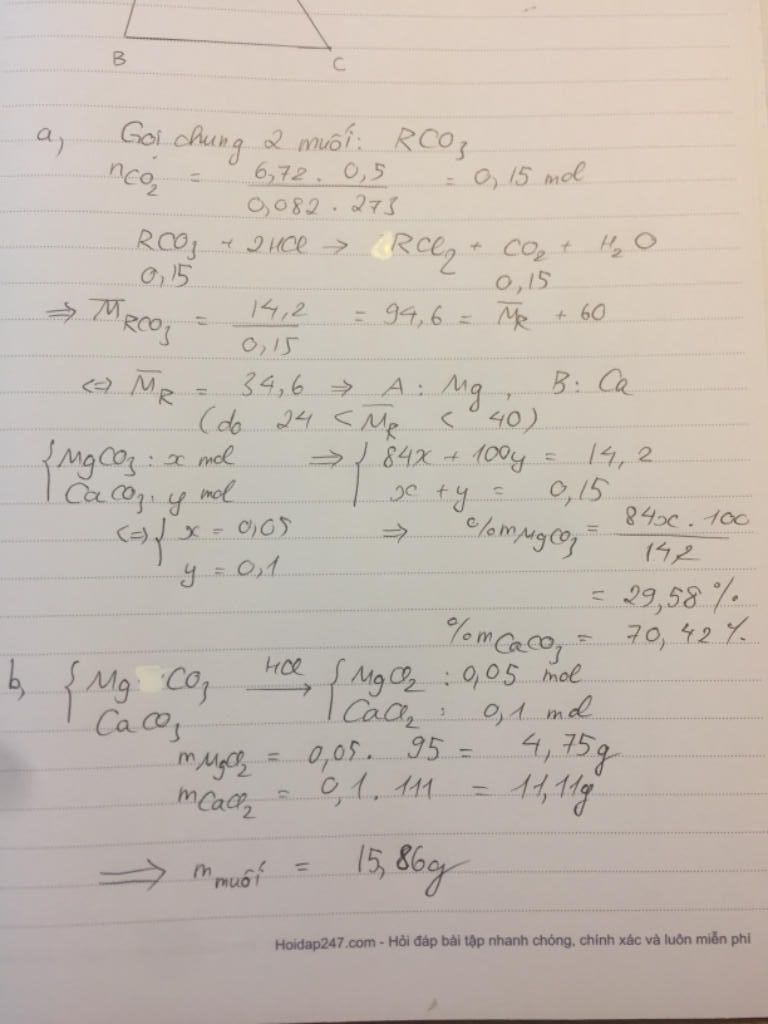 B
C
a, Gọi chung 2 muối: RCO3
nCO2 = 6,72 . 0,5 / 0,082 . 273 = 0,15 mol
RCO3 + 2HCl → RCl2 + CO2 + H2O
0,15 0,15
⇒ M̅RCO3 = 14,2 / 0,15 = 94,6 = M̅R + 60
<=> M̅R = 34,6 ⇒ A : Mg , B : Ca
(do 24 < M̅R < 40)
{ MgCO3 : x mol ⇒ { 84x + 100y = 14,2
CaCO3 . y mol x + y = 0,15
<=> { x = 0,05 ⇒ %mMgCO3 = 84x . 100 / 14,2
y = 0,1
= 29,58 %
%mCaCO3 = 70,42 %
b, { Mg CO3 HCl → { MgCl2 : 0,05 mol
CaCO3 CaCl2 : 0,1 mol
mMgCl2 = 0,05 . 95 = 4,75g
mCaCl2 = 0,1 . 111 = 11,11g
⟹ mmuối = 15,86g
Hoidap247.com - Hỏi đáp bài tập nhanh chóng, chính xác và luôn miễn phí